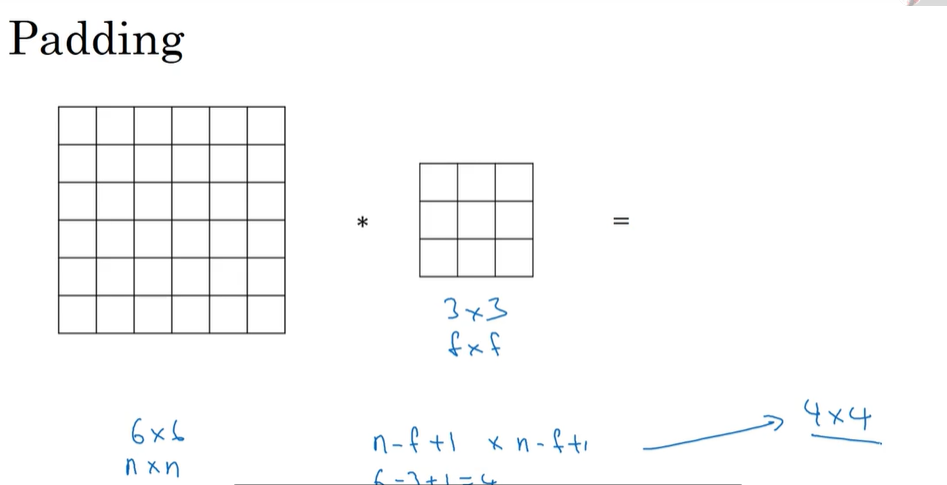 Padding
*
=
3×3
f×f
6×6
n×n
n-f+1 × n-f+1
4×4
6-3+1=4